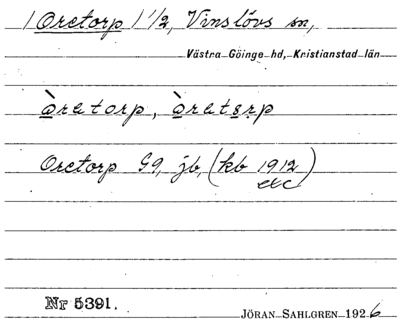 1 Oretorp 1 1/2, Vinslövs sn,
Västra Göinge hd, Kristianstad län
òretorp, òretsrp
Oretorp G9, jb, (kb 1912)
etc
Nr 5391.
JÖRAN SAHLGREN 1926